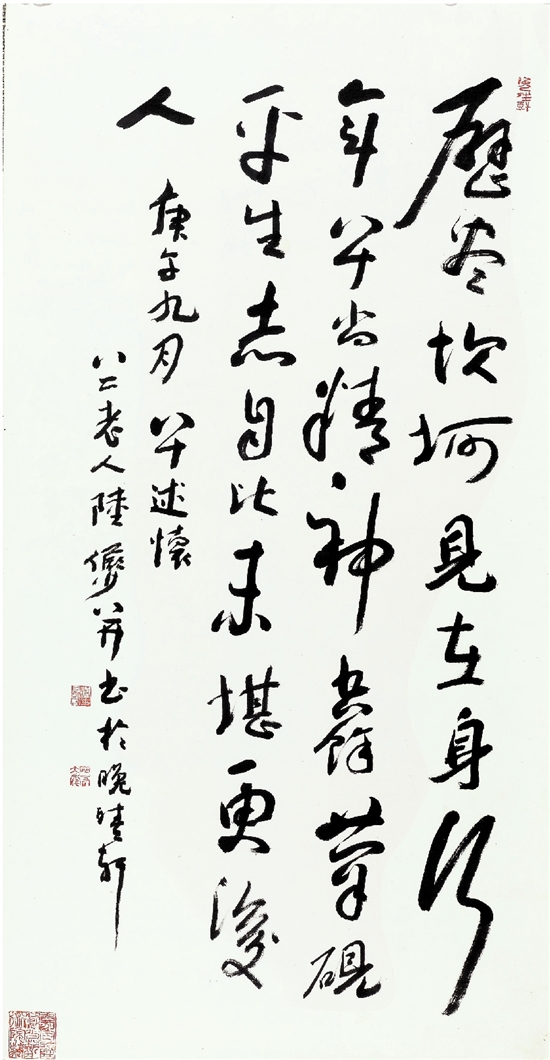 歷盡坎坷見在身行
年八十尚精神餘筆硯
平生志自比未堪更後
人
庚午九月 八十述懷
八二老人陸儼少并書於晚晴軒